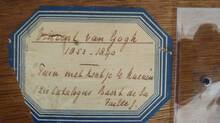 Vincent van Gogh
1853-1890
Tuin met hentje te Nuenen
Zie Catalogus Baart de la
Faille